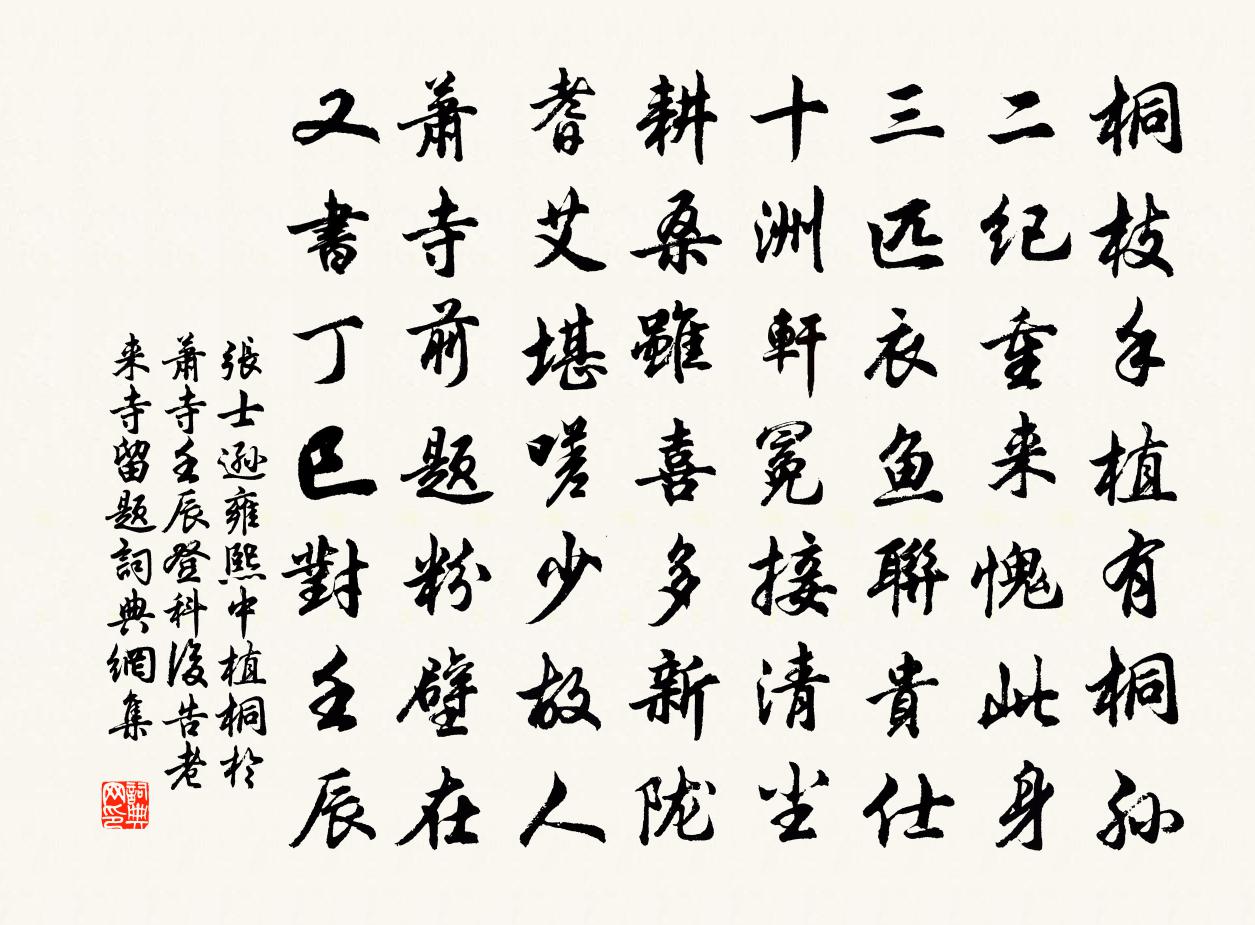 桐枝手植有桐孙
二纪重来愧此身
三匹衣鱼聯貴仕
十洲軒冕接清尘
耕桑雖喜多新陇
耆艾堪嗟少故人
蕭寺前题粉壁在
又書丁巳對壬辰
張士遜雍熙中植桐於
蕭寺壬辰登科後告老
来寺留题詞典網集
詞典网印